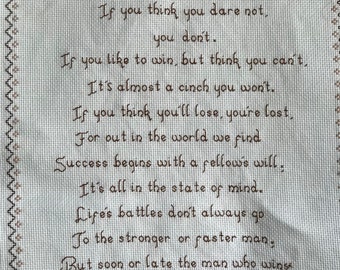 If you think you dare not,
you don't.
If you like to win, but think you can't,
It's almost a cinch you won't.
If you think you'll lose, you're lost,
For out in the world we find
Success begins with a fellow's will;
It's all in the state of mind.
Life's battles don't always go
To the stronger or faster man;
But soon or late the man who wins